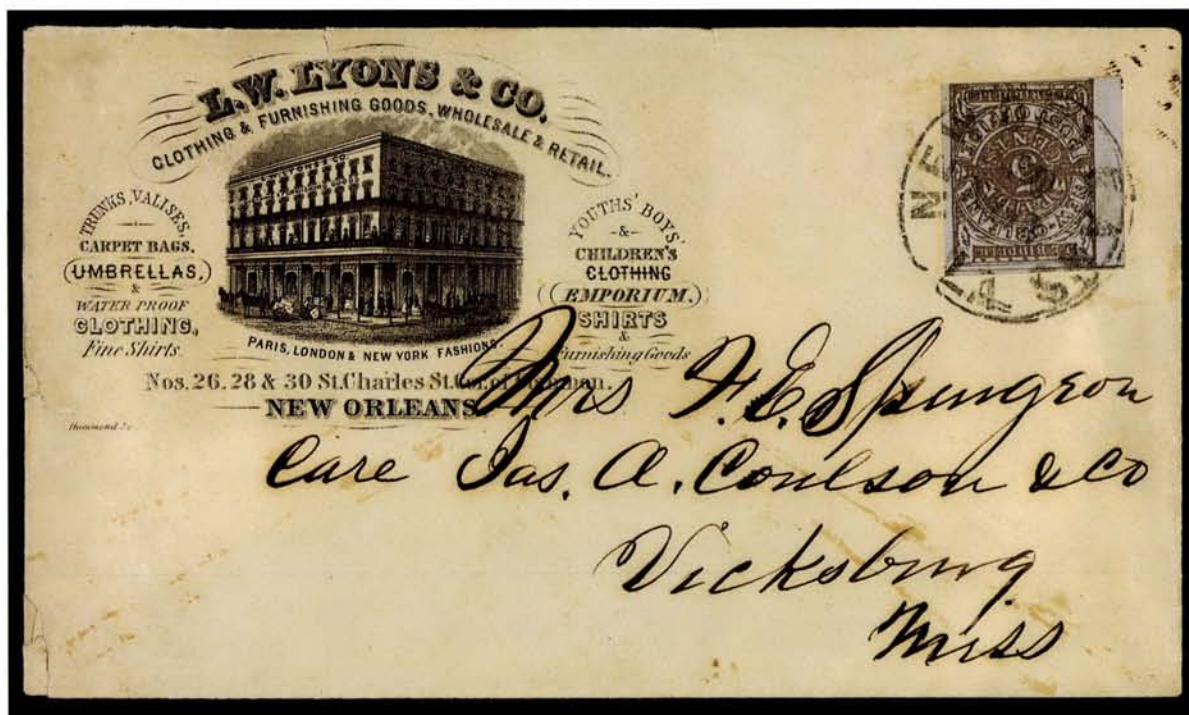 L.W. LYONS & CO.
CLOTHING & FURNISHING GOODS, WHOLESALE & RETAIL.
TRUNKS, VALISES,
CARPET BAGS,
UMBRELLAS,
&
WATER PROOF
CLOTHING,
Fine Shirts
YOUTHS' BOYS'
-&-
CHILDREN'S
CLOTHING
EMPORIUM,
SHIRTS
&
Furnishing Goods
PARIS, LONDON & NEW YORK FASHIONS.
Nos. 26. 28 & 30 St. Charles St. Cor. of
NEW ORLEANS
Mrs F. E. Spurgeon
Care Jas. A. Coulson & Co
Vicksburg
Miss
POST OFFICE
NEW-ORLEANS
5
CENTS
NEW